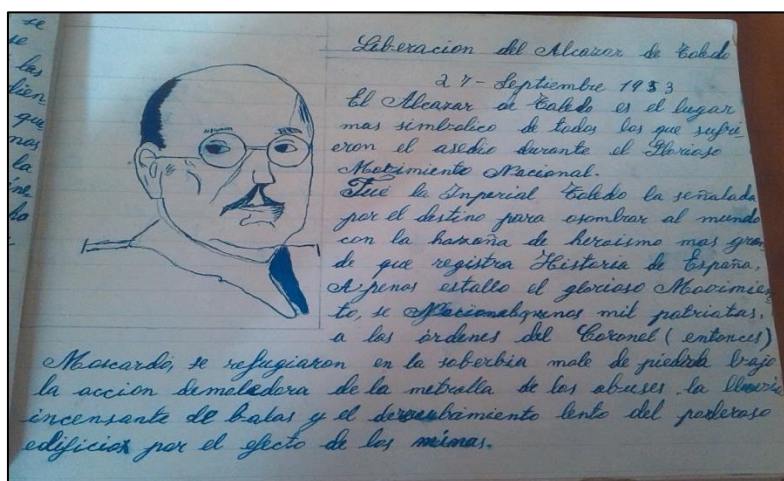 se
se
las
dien
que
nos
la
ine
ha
Liberacion del Alcazar de Toledo
27-Septiembre 1953
El Alcazar de Toledo es el lugar
mas simbolico de todos los que sufri
eron el asedio durante el Glorioso
Movimiento Nacional.
Fué la Imperial Toledo la señalada
por el destino para asombrar al mundo
con la hazaña de heroismo mas gran
de que registra Historia de España,
Apenas estallo el glorioso Movimien
to, se mil patriotas,
a las órdenes del Coronel (entonces)
Moscardó, se refugiaron en la soberbia mole de piedra bajo
la accion demoledora de la metralla de los obuses, la lluvia
incensante de balas y el lento del poderoso
edificio por el efecto de las minas.